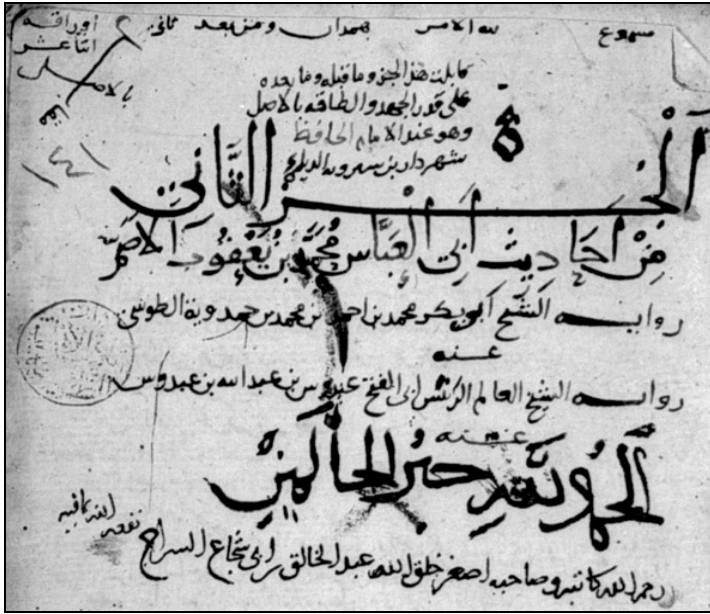 مسموع لله الامر بهمدان ومن بعد ثاني
اوراقه
اثنا عشر
بالاصل
قابلت هذا الجزء وما قبله وما بعده
على قدر الجهد والطاقة بالاصل
وهو عند الامام الحافظ
شهردار بن شيرويه الديلمي
الجزء الثاني
من احاديث ابي العباس محمد بن يعقوب الاصم
رواية الشيخ ابو بكر محمد بن احمد بن محمد بن حمدوية الطوسي
عنه
رواية الشيخ العالم الرئيس ابي الفتح عبدوس بن عبد الله بن عبدوس
عنه
الحمد لله رب العالمين
رحم الله كاتبه وصاحبه اصغر خلق الله عبد الخالق بن ابي شجاع السراج
نفعه الله بما فيه